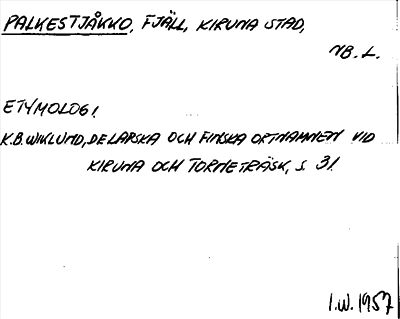 PALKESTJÅKKO, FJÄLL, KIRUNA STAD,
NB. L.
ETYMOLOGI
K.B. WIKLUND, DE LAPSKA OCH FINSKA ORTNAMNEN VID
KIRUNA OCH TORNETRÄSK, S. 31
I.W. 1957